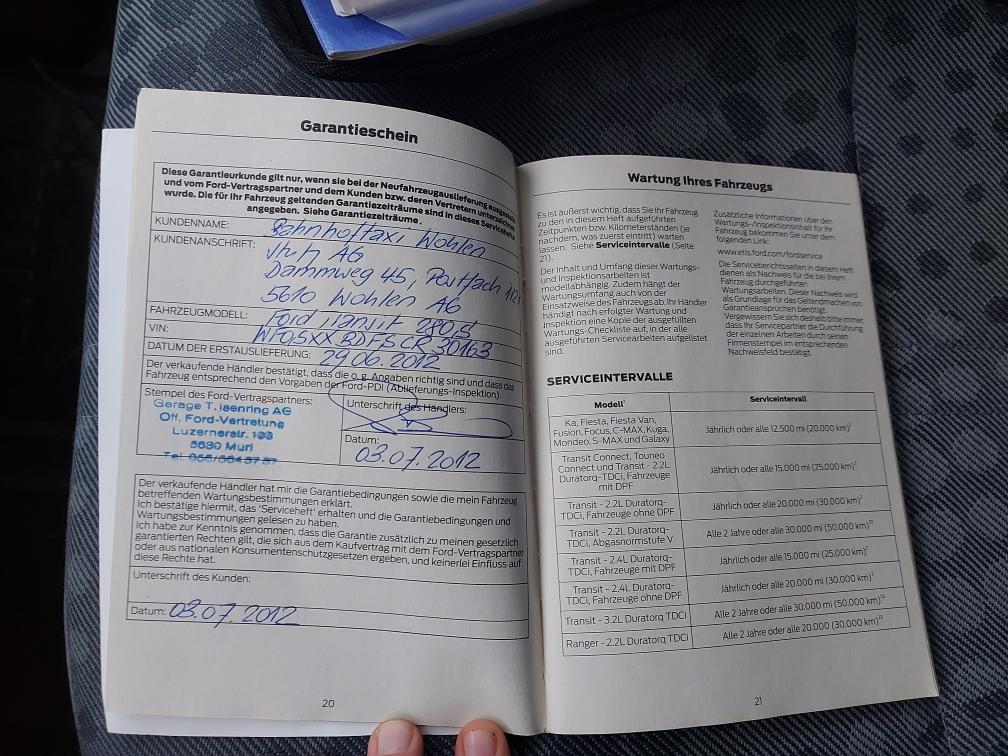 Garantieschein
Diese Garantieurkunde gilt nur, wenn sie bei der Neufahrzeugauslieferung
und vom Ford-Vertragspartner und dem Kunden bzw. deren Vertretern
wurde. Die für Ihr Fahrzeug geltenden Garantiezeiträume sind in dieses
angegeben. Siehe Garantiezeiträume.
KUNDENNAME: Bahnhoftaxi Wohlen
KUNDENANSCHRIFT: AG
Dammweg 45, Postfach
5610 Wohlen AG
FAHRZEUGMODELL: Ford Transit
VIN:
DATUM DER ERSTAUSLIEFERUNG: 29.06.2012
Der verkaufende Händler bestätigt, dass die o. g. Angaben richtig sind und dass das
Fahrzeug entsprechend den Vorgaben der Ford-PDI (Ablieferungs-Inspektion).
Stempel des Ford-Vertragspartners:
Garage T. Isenring AG
Off. Ford-Vertretung
Luzernerstr.
5630 Muri
Tel.
Unterschrift des Händlers:
Datum:
03.07.2012
Der verkaufende Händler hat mir die Garantiebedingungen sowie die mein Fahrzeug
betreffenden Wartungsbestimmungen erklärt.
Ich bestätige hiermit, das 'Serviceheft' erhalten und die Garantiebedingungen und
Wartungsbestimmungen gelesen zu haben.
Ich habe zur Kenntnis genommen, dass die Garantie zusätzlich zu meinen gesetzlich
garantierten Rechten gilt, die sich aus dem Kaufvertrag mit dem Ford-Vertragspartner
oder aus nationalen Konsumentenschutzgesetzen ergeben, und keinerlei Einfluss auf
diese Rechte hat.
Unterschrift des Kunden:
Datum: 03.07.2012
20
Wartung Ihres Fahrzeugs
Es ist äußerst wichtig, dass Sie Ihr Fahrzeug
zu den in diesem Heft aufgeführten
Zeitpunkten bzw. Kilometerständen (je
nachdem, was zuerst eintrifft) warten
lassen. Siehe Serviceintervalle (Seite
21).
Der Inhalt und Umfang dieser Wartungs-
und Inspektionsarbeiten ist
modellabhängig. Zudem hängt der
Wartungsumfang auch von der
Einsatzweise des Fahrzeugs ab. Ihr Händler
händigt nach erfolgter Wartung und
Inspektion eine Kopie der ausgefüllten
Wartungs-Checkliste auf, in der alle
ausgeführten Servicearbeiten aufgelistet
sind.
Zusätzliche Informationen über den
Wartungs-/Inspektionsinhalt für Ihr
Fahrzeug bekommen Sie unter dem
folgenden Link:
www.etis.ford.com/fordservice
Die Serviceberichtsseiten in diesem Heft
dienen als Nachweis für die bei Ihrem
Fahrzeug durchgeführten
Wartungsarbeiten. Dieser Nachweis wird
als Grundlage für das Geltendmachen von
Garantieansprüchen benötigt.
Vergewissern Sie sich deshalb bitte immer,
dass Ihr Servicepartner die Durchführung
der einzelnen Arbeiten durch seinen
Firmenstempel im entsprechenden
Nachweisfeld bestätigt.
SERVICEINTERVALLE
Modell¹ Serviceintervall
Ka, Fiesta, Fiesta Van,
Fusion, Focus, C-MAX, Kuga,
Mondeo, S-MAX und Galaxy
Jährlich oder alle 12.500 mi (20.000 km)²
Transit Connect, Touneo
Connect und Transit - 2.2L
Duratorq-TDCi, Fahrzeuge
mit DPF
Jährlich oder alle 15.000 mi (25.000 km)²
Transit - 2.2L Duratorq-
TDCi, Fahrzeuge ohne DPF
Jährlich oder alle 20.000 mi (30.000 km)²
Transit - 2.2L Duratorq-
TDCi, Abgasnormstufe V
Alle 2 Jahre oder alle 30.000 mi (50.000 km)
Transit - 2.4L Duratorq-
TDCi, Fahrzeuge mit DPF
Jährlich oder alle 15.000 mi (25.000 km)²
Transit - 2.4L Duratorq-
TDCi, Fahrzeuge ohne DPF
Jährlich oder alle 20.000 mi (30.000 km)²
Transit - 3.2L Duratorq TDCi
Alle 2 Jahre oder alle 30.000 mi (50.000 km)
Ranger - 2.2L Duratorq TDCi
Alle 2 Jahre oder alle 20.000 (30.000 km)
21